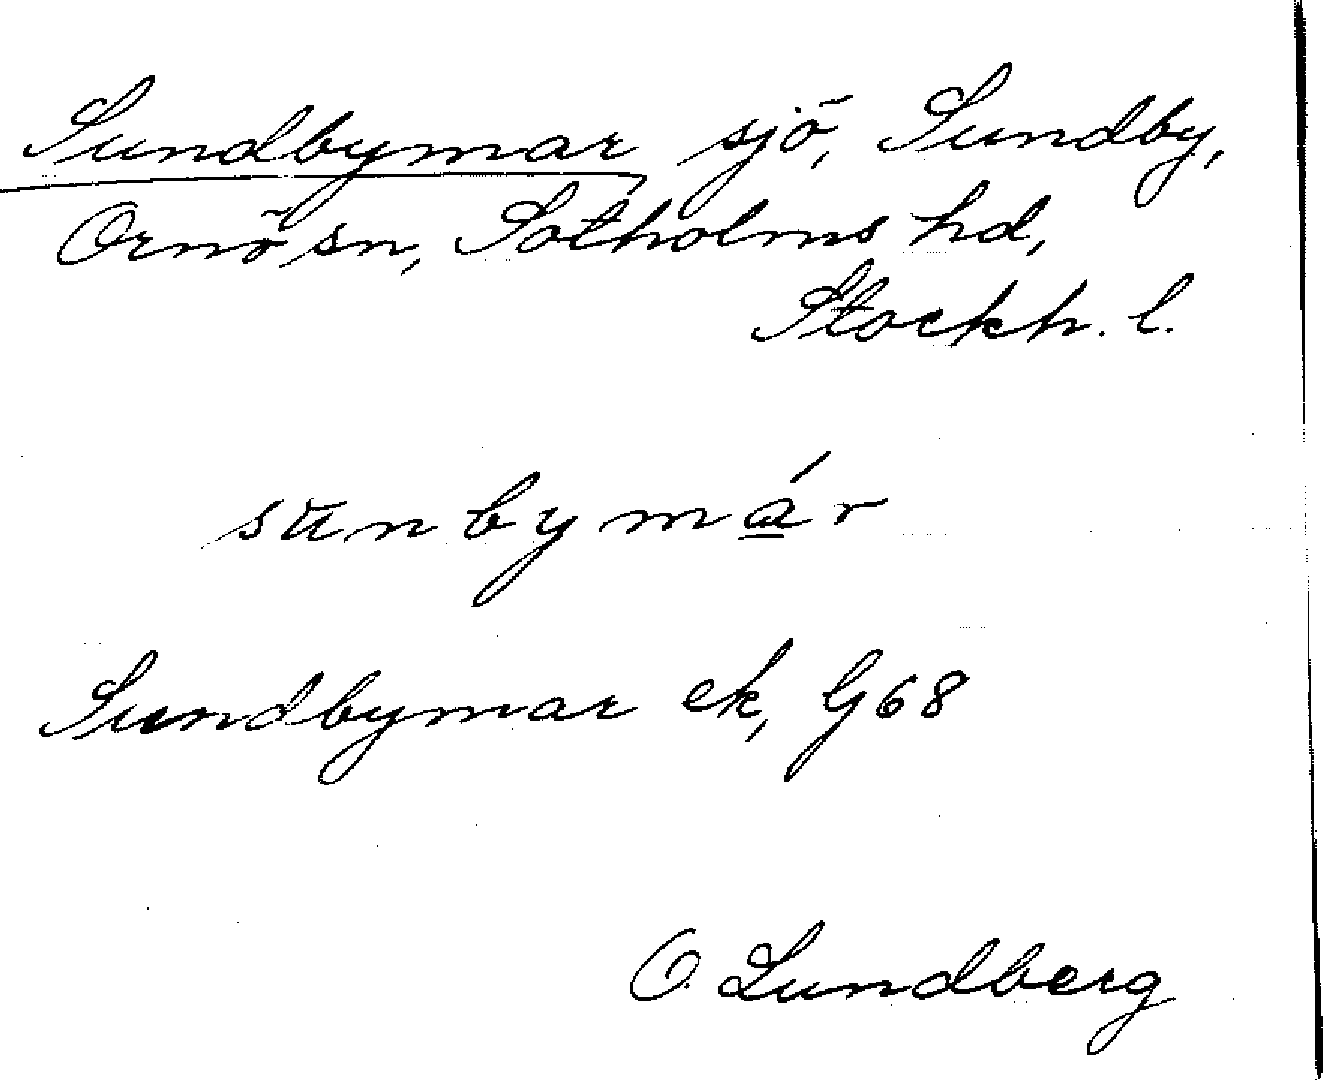 Sundbymar sjö, Sundby,
Ornö sn, Sotholms hd,
Stockh. l.
sūnbymá̲r
Sundbymar ek, G68
O. Lundberg